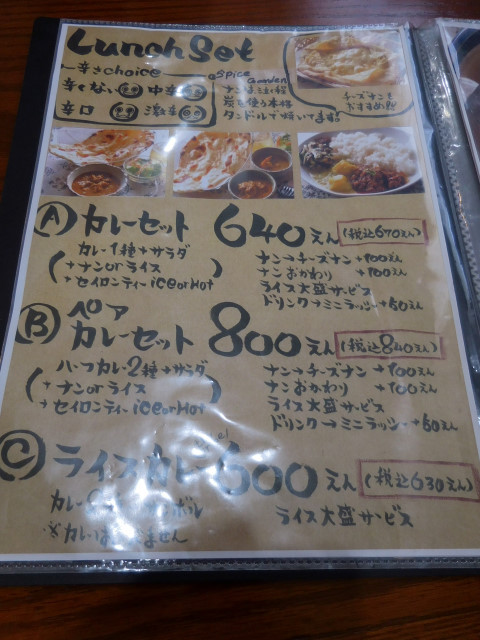 Lunch Set
辛さchoice
辛くない 中辛
辛口 激辛
Spice Garden
ナンは注文後
炭を使う本格
タンドルで焼いてます!
チーズナンも
おすすめ
Ⓐ カレーセット 640えん (税込670えん)
カレー1種+サラダ
+ナンorライス
+セイロンティーice or Hot
ナン→チーズナン+100えん
ナンおかわり +100えん
ライス大盛サービス
ドリンク→ミニラッシー+50えん
Ⓑ ペア
カレーセット 800えん (税込840えん)
ハーフカレー2種+サラダ
+ナンorライス
+セイロンティーice or Hot
ナン→チーズナン→+100えん
ナンおかわり +100えん
ライス大盛サービス
ドリンク→ミニラッシー+50えん
Ⓒ ライスカレー 600えん (税込630えん)
カレー
※カレー ません
ライス大盛サービス